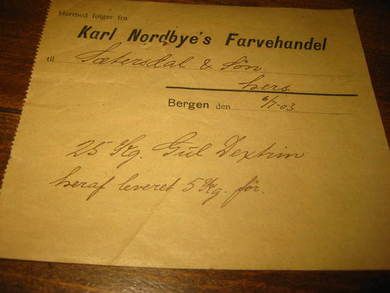 Hermed følger fra
Karl Nordbye's Farvehandel
til Sætersdal & Søn
hers
Bergen den 6/7-03
25 Kg. Gül Dextrin
heraf leveret 5 Kg. før.